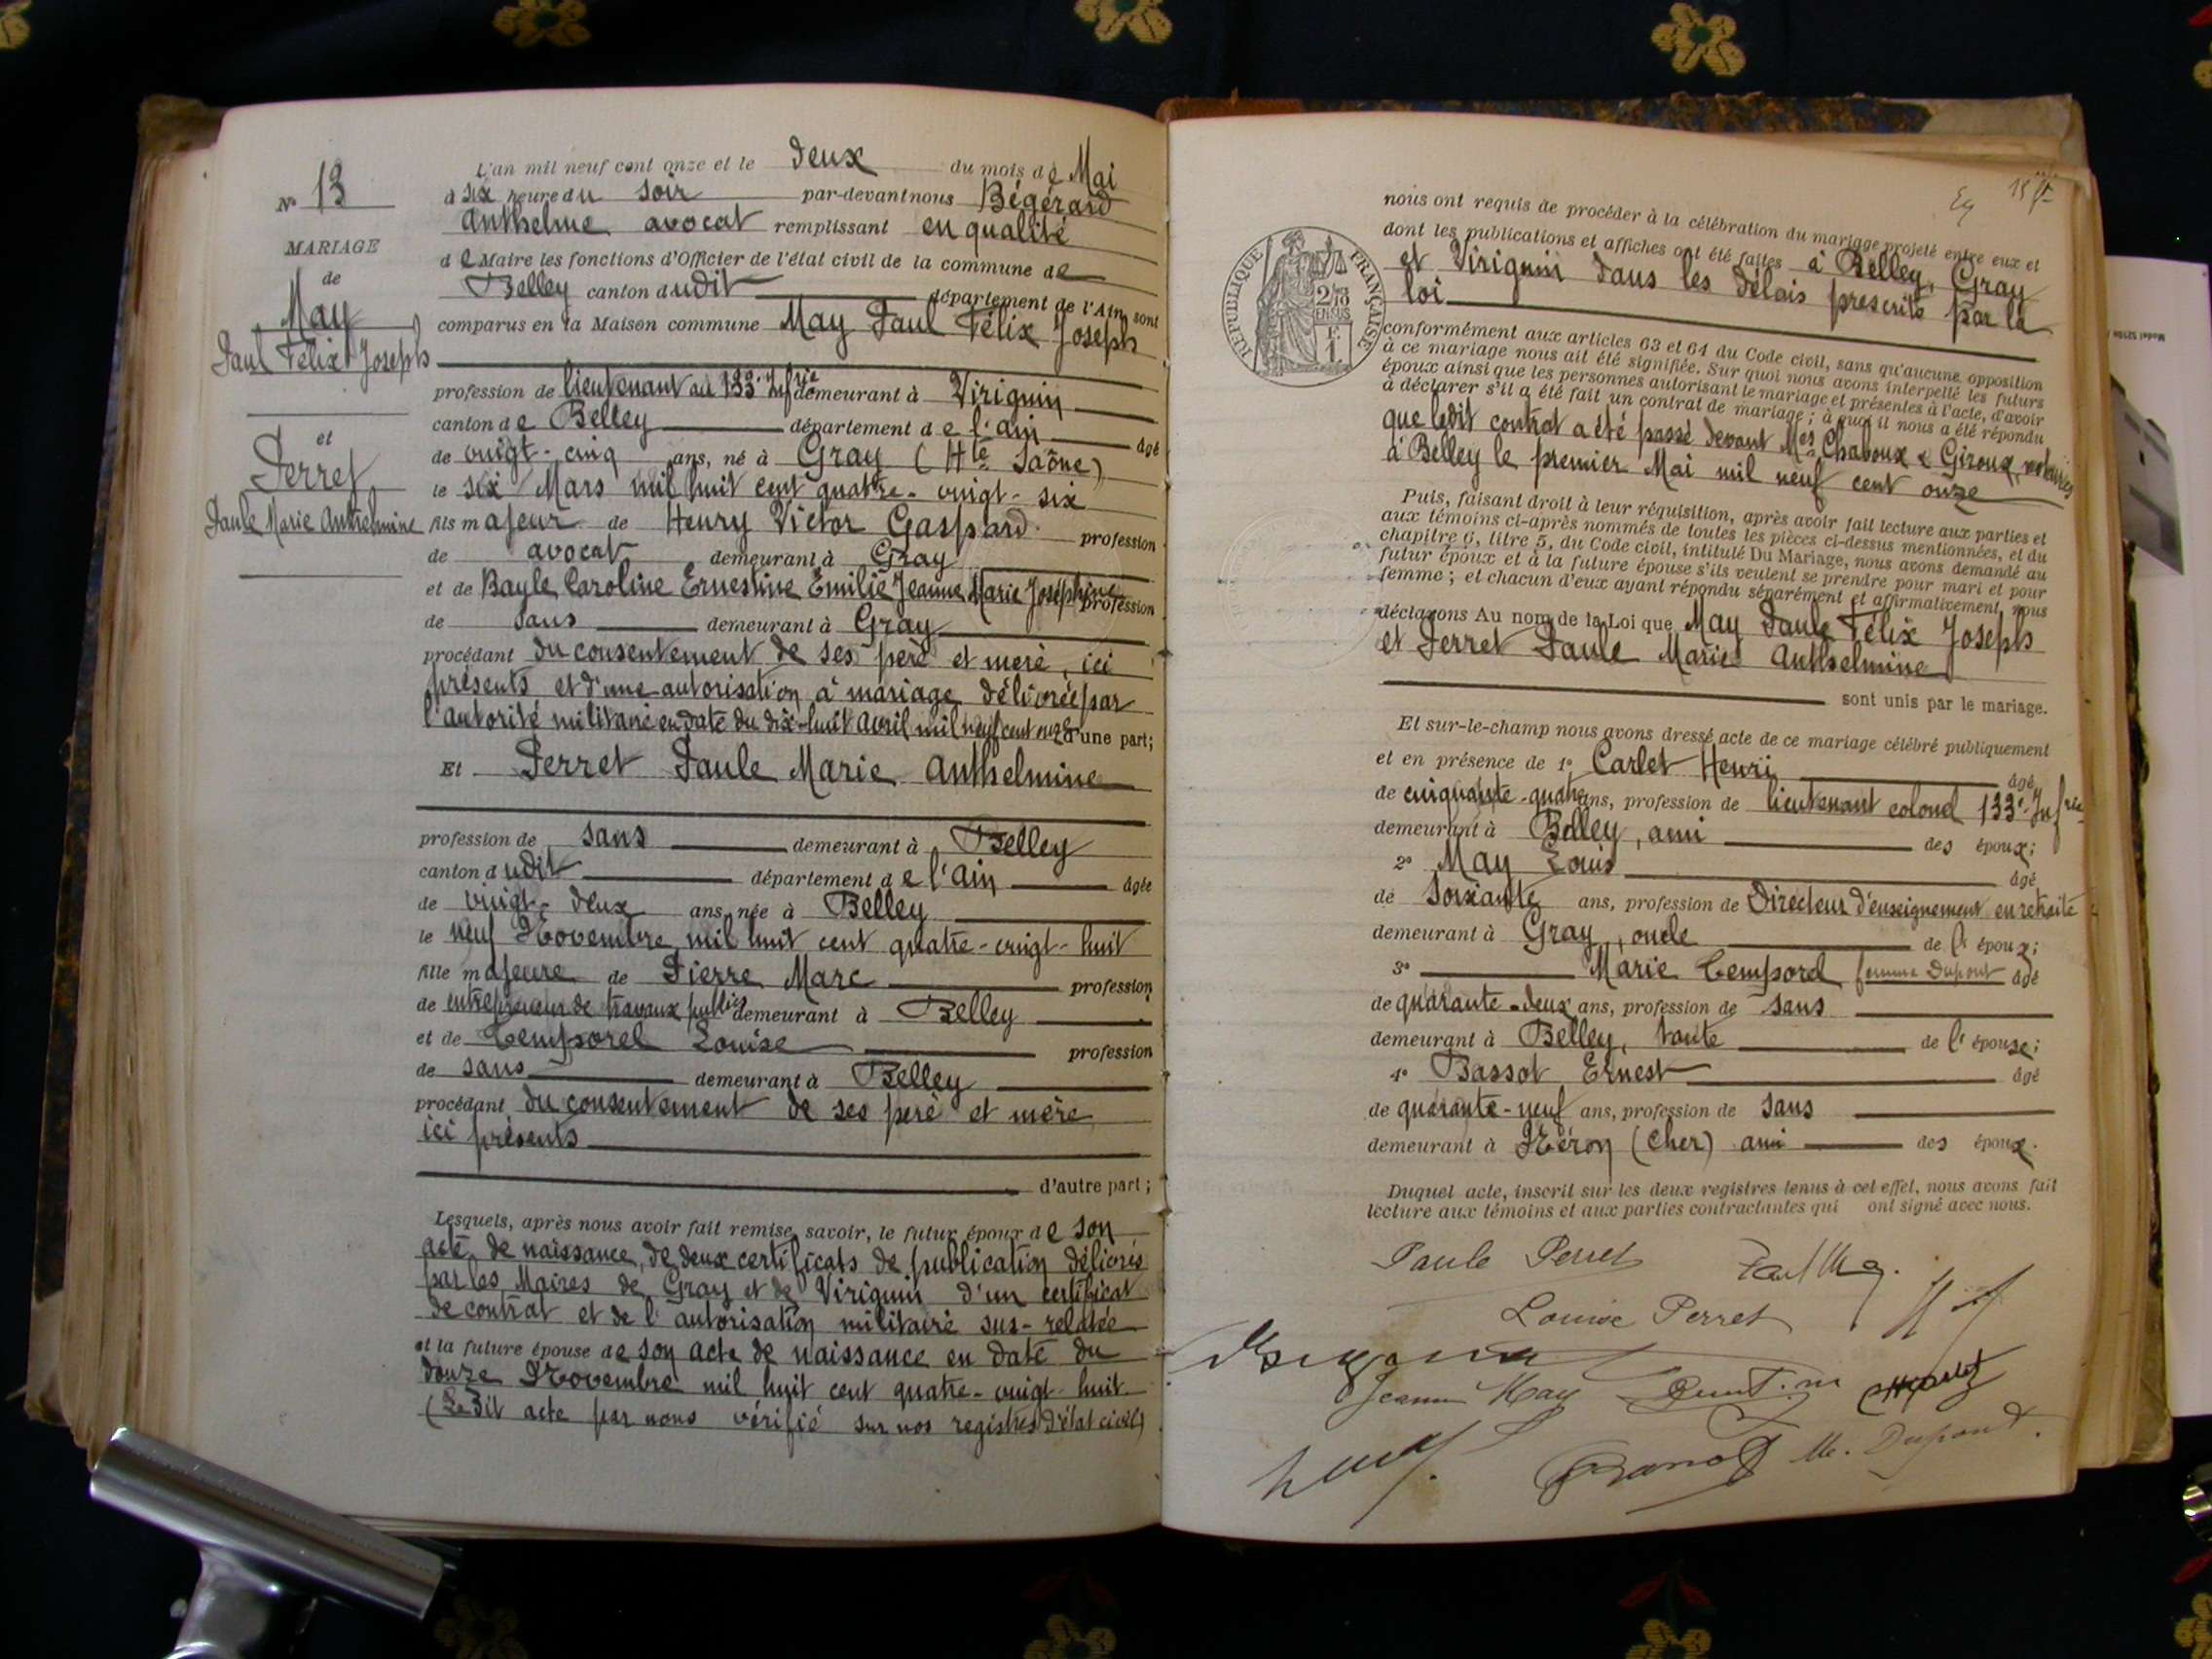 L'an mil neuf cent onze et le deux du mois de Mai
à six heure du soir par-devant nous Bégérard
Anthelme avocat remplissant en qualité
de Maire les fonctions d'Officier de l'état civil de la commune de
Belley canton dudit département de l'Ain, sont
comparus en la Maison commune May Paul Félix Joseph
N° 13
MARIAGE
de
May
Paul Félix Joseph
et
Perret
Paule Marie Anthelmine
profession de lieutenant au 133e Infrie demeurant à Virignin
canton de Belley département de l'Ain âgé
de vingt-cinq ans, né à Gray (Hte Saône)
le six Mars mil huit cent quatre-vingt-six
fils majeur de Henry Victor Gaspard profession
de avocat demeurant à Gray
et de Bayle Caroline Ernestine Emilie Jeanne Marie Joséphine profession
de sans demeurant à Gray
procédant du consentement de ses père et mère, ici
présents et d'une autorisation à mariage délivrée par
l'autorité militaire en date du dix-huit Avril mil neuf cent onze d'une part;
Et Perret Paule Marie Anthelmine
profession de sans demeurant à Belley
canton dudit département de l'Ain âgée
de vingt-deux ans, née à Belley
le neuf Novembre mil huit cent quatre-vingt-huit
fille majeure de Pierre Marc profession
de entrepreneur de travaux publics demeurant à Belley
et de Temporel Louise profession
de sans demeurant à Belley
procédant du consentement de ses père et mère
ici présents
d'autre part;
Lesquels, après nous avoir fait remise, savoir, le futur époux de son
acte de naissance, de deux certificats de publication délivrés
par les Maires de Gray et de Virignin d'un certificat
de contrat et de l'autorisation militaire sus-relatée
et la future épouse de son acte de naissance en date du
douze Novembre mil huit cent quatre-vingt-huit
(Ledit acte par nous vérifié sur nos registres d'état civil)
15
nous ont requis de procéder à la célébration du mariage projeté entre eux et
dont les publications et affiches ont été faites à Belley, Gray
et Virignin dans les délais prescrits par la
loi
RÉPUBLIQUE FRANÇAISE
2/10
EN SUS
F
1.
conformément aux articles 63 et 64 du Code civil, sans qu'aucune opposition
à ce mariage nous ait été signifiée. Sur quoi nous avons interpellé les futurs
époux ainsi que les personnes autorisant le mariage et présentes à l'acte, d'avoir
à déclarer s'il a été fait un contrat de mariage; à quoi il nous a été répondu
que ledit contrat a été passé devant Mes Chaboux & Giroux, notaires
à Belley le premier Mai mil neuf cent onze
Puis, faisant droit à leur réquisition, après avoir fait lecture aux parties et
aux témoins ci-après nommés de toutes les pièces ci-dessus mentionnées, et du
chapitre 6, titre 5, du Code civil, intitulé Du Mariage, nous avons demandé au
futur époux et à la future épouse s'ils veulent se prendre pour mari et pour
femme; et chacun d'eux ayant répondu séparément et affirmativement, nous
déclarons Au nom de la Loi que May Paule Félix Joseph
et Perret Paule Marie Anthelmine
sont unis par le mariage.
Et sur-le-champ nous avons dressé acte de ce mariage célébré publiquement
et en présence de 1° Carlet Henri âgé
de cinquante-quatre ans, profession de lieutenant colonel 133e Infrie
demeurant à Belley, ami des époux;
2° May Louis âgé
de soixante ans, profession de Directeur d'enseignement en retraite
demeurant à Gray, oncle de l'époux;
3° Marie Temporel femme Dupont âgé
de quarante-deux ans, profession de sans
demeurant à Belley, tante de l'épouse;
4° Bassot Ernest âgé
de quarante-neuf ans, profession de sans
demeurant à Néron (Cher) ami des époux.
Duquel acte, inscrit sur les deux registres tenus à cet effet, nous avons fait
lecture aux témoins et aux parties contractantes qui ont signé avec nous.
Paule Perret Paul May
Louise Perret
Jeanne May
Bassot M. Dupont